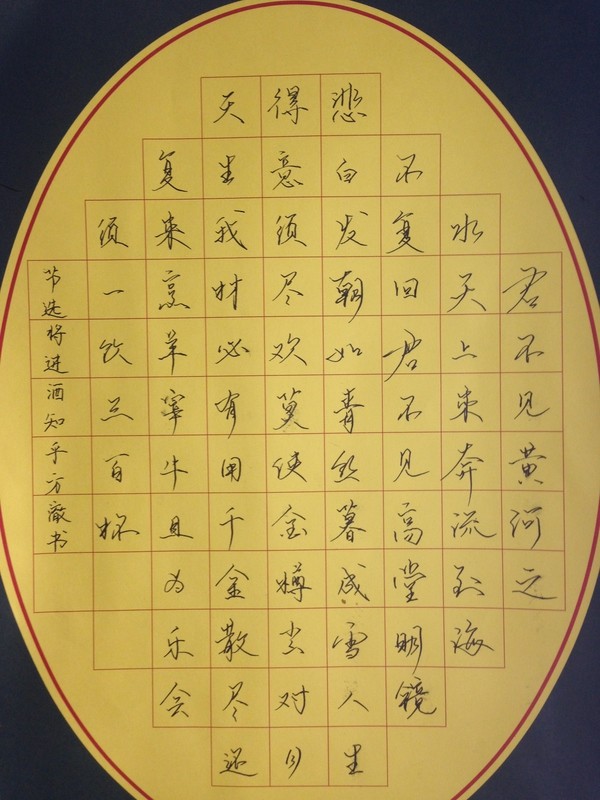 君不见黄河之
水天上来奔流到海
不复回君不见高堂明镜
悲白发朝如青丝暮成雪人生
得意须尽欢莫使金樽空对月
天生我材必有用千金散尽还
复来烹羊宰牛且为乐会
须一饮三百杯
节选将进酒知乎方澈书